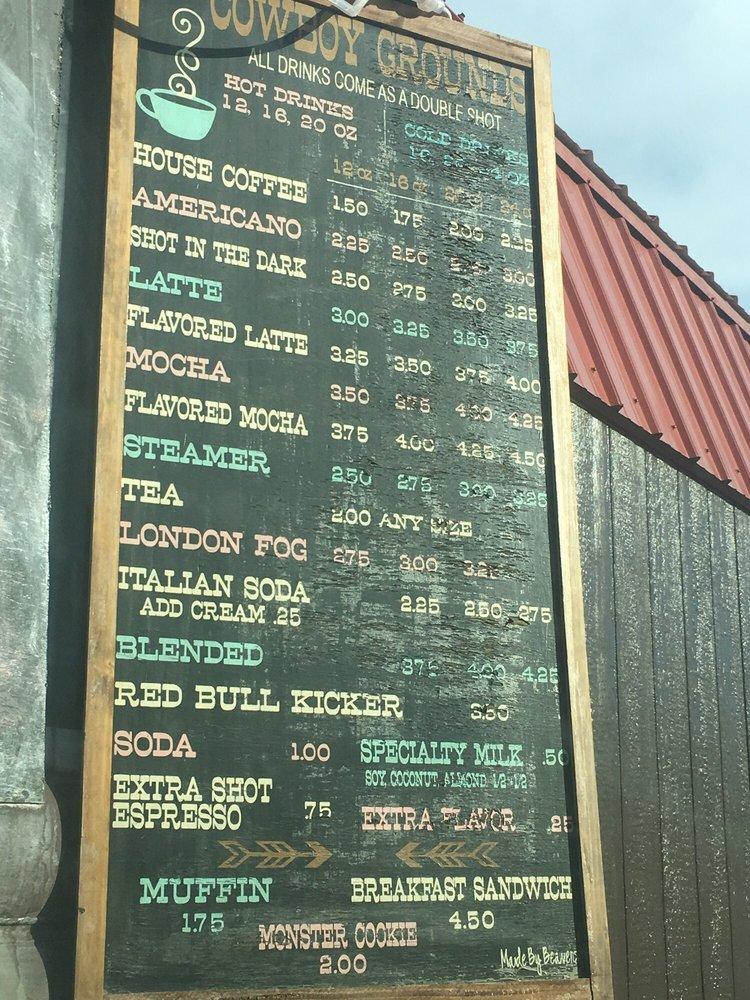 COWBOY GROUNDS
ALL DRINKS COME AS A DOUBLE SHOT
HOT DRINKS
12, 16, 20 OZ
COLD DRINKS
OZ
12 oz 16 oz
HOUSE COFFEE 1.50 1.75 2.00 2.25
AMERICANO 2.25 2.50 3.00
SHOT IN THE DARK 2.50 2.75 3.00 3.25
LATTE 3.00 3.25 3.50 3.75
FLAVORED LATTE 3.25 3.50 3.75 4.00
MOCHA 3.50 3.75 4.00 4.25
FLAVORED MOCHA 3.75 4.00 4.25 4.50
STEAMER 2.50 2.75 3.00 3.25
TEA 2.00 ANY SIZE
LONDON FOG 2.75 3.00 3.25
ITALIAN SODA 2.25 2.50 2.75
ADD CREAM .25
BLENDED 3.75 4.00 4.25
RED BULL KICKER 3.50
SODA 1.00
SPECIALTY MILK .50
SOY, COCONUT, ALMOND, 1/2-1/2
EXTRA SHOT
ESPRESSO .75
EXTRA FLAVOR .25
MUFFIN
1.75
BREAKFAST SANDWICH
4.50
MONSTER COOKIE
2.00
Made By Beavers